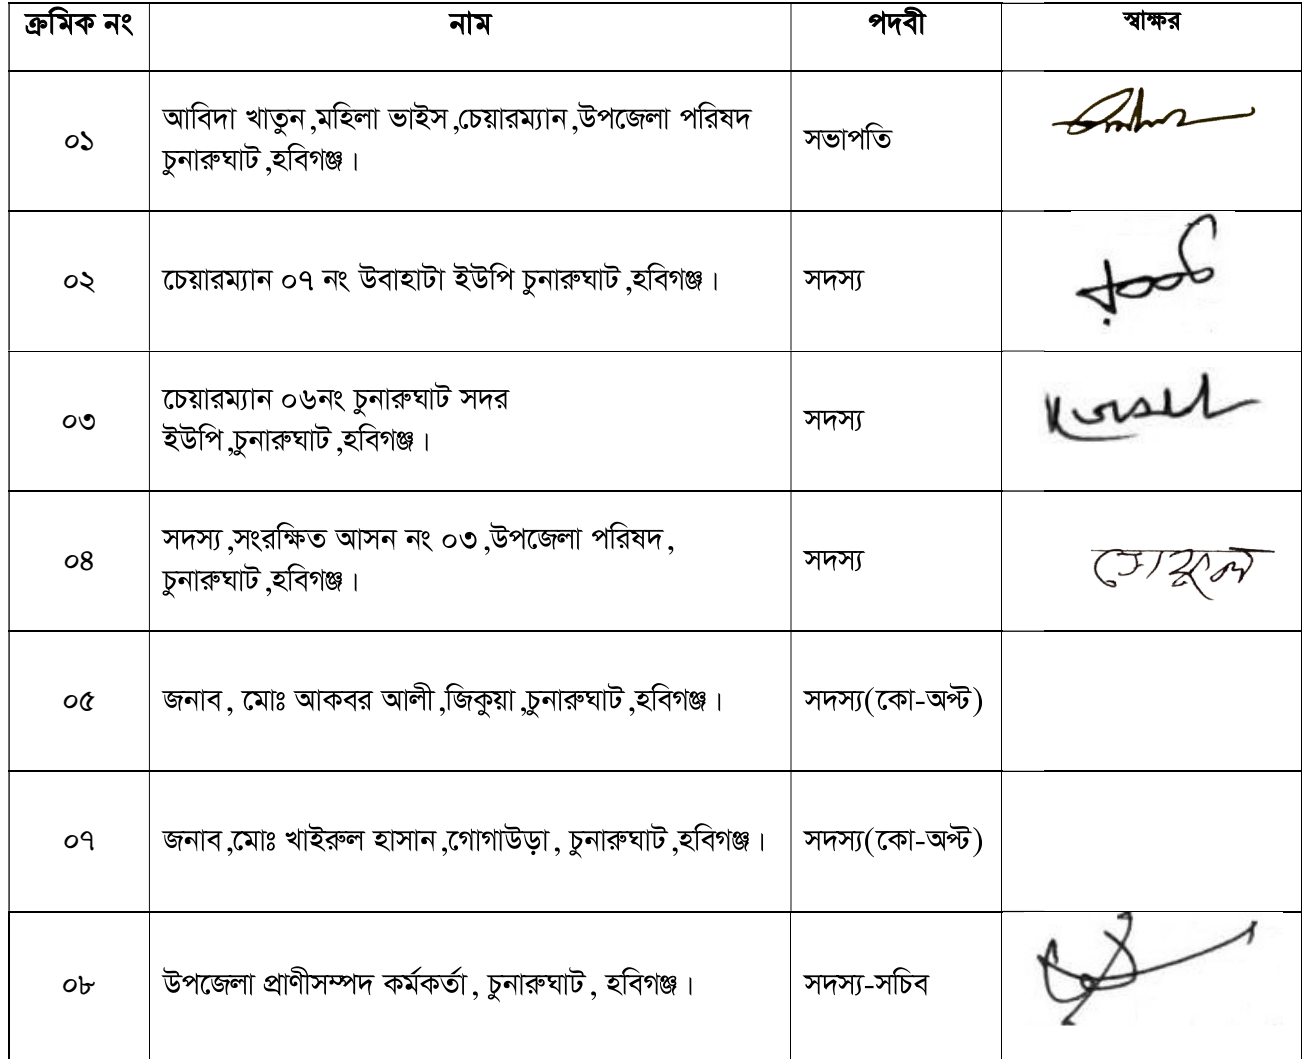 ক্রমিক নং নাম পদবী স্বাক্ষর
০১ আবিদা খাতুন,মহিলা ভাইস,চেয়ারম্যান,উপজেলা পরিষদ
চুনারুঘাট,হবিগঞ্জ। সভাপতি
০২ চেয়ারম্যান ০৭ নং উবাহাটা ইউপি চুনারুঘাট,হবিগঞ্জ। সদস্য
০৩ চেয়ারম্যান ০৬নং চুনারুঘাট সদর
ইউপি,চুনারুঘাট,হবিগঞ্জ। সদস্য
০৪ সদস্য,সংরক্ষিত আসন নং ০৩,উপজেলা পরিষদ,
চুনারুঘাট,হবিগঞ্জ। সদস্য
০৫ জনাব, মোঃ আকবর আলী,জিকুয়া,চুনারুঘাট,হবিগঞ্জ। সদস্য(কো-অপ্ট)
০৭ জনাব,মোঃ খাইরুল হাসান,গোগাউড়া, চুনারুঘাট,হবিগঞ্জ। সদস্য(কো-অপ্ট)
০৮ উপজেলা প্রাণীসম্পদ কর্মকর্তা, চুনারুঘাট, হবিগঞ্জ। সদস্য-সচিব